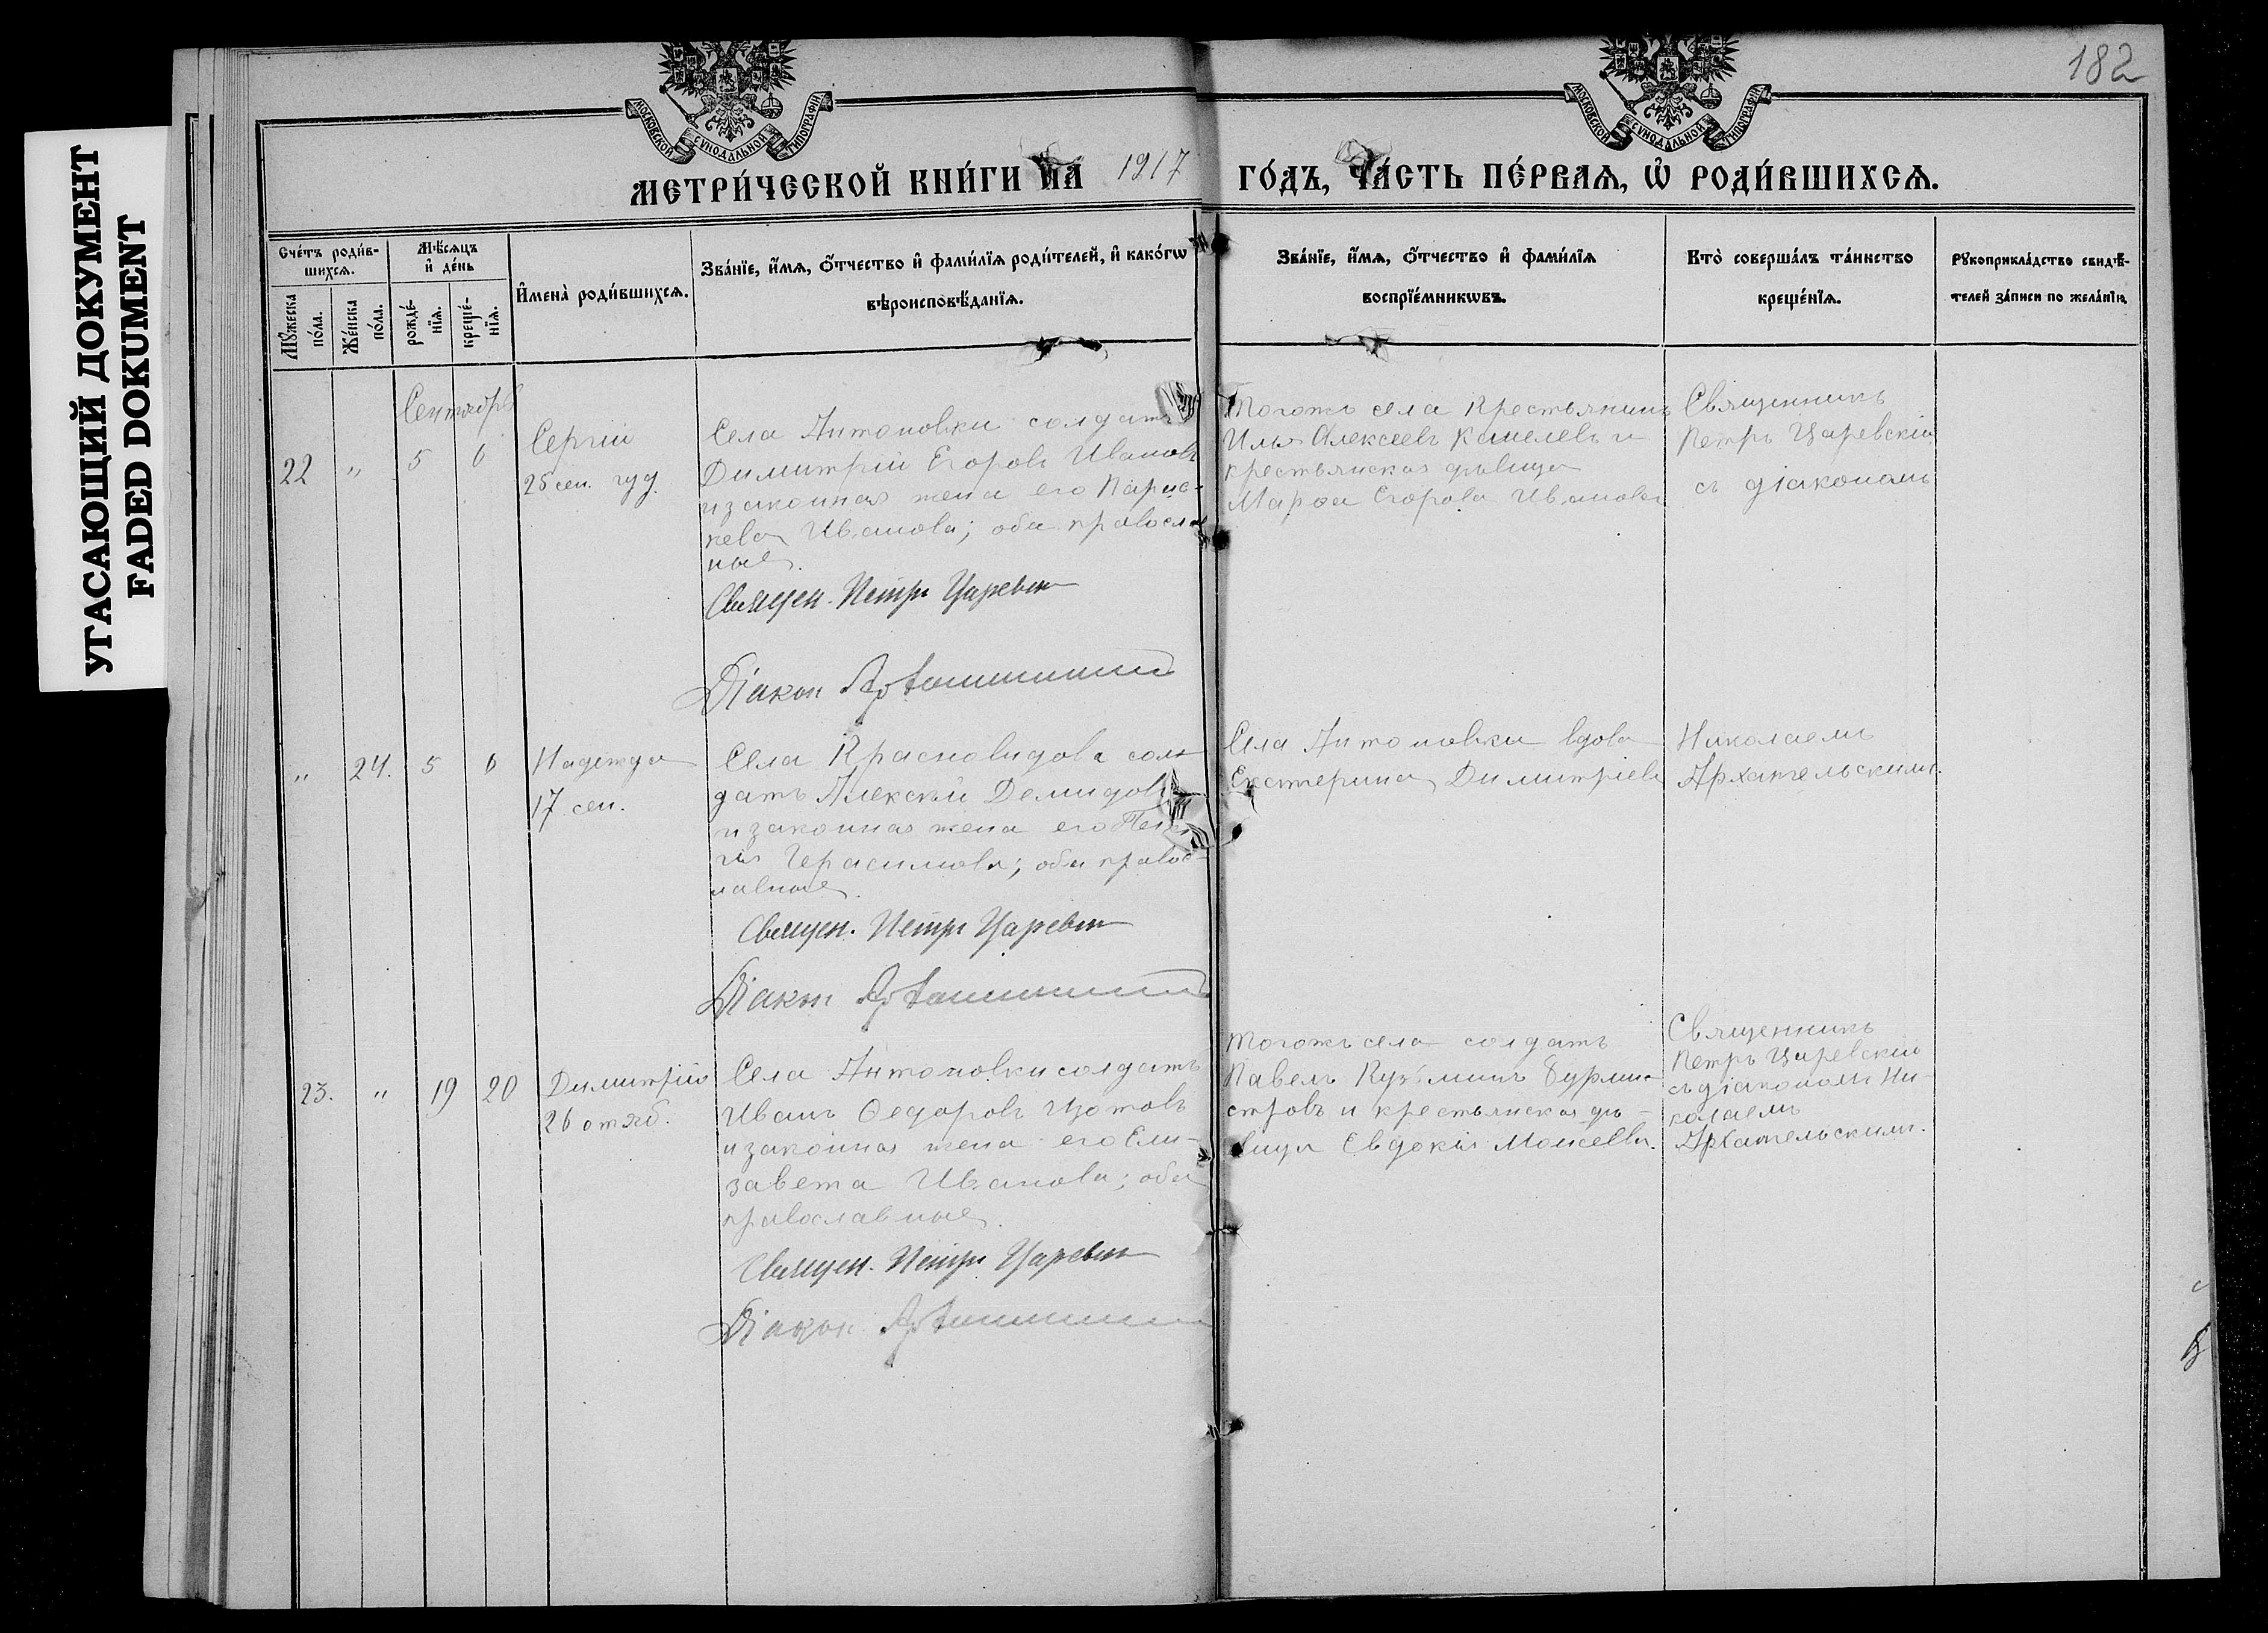 УГАСАЮЩИЙ ДОКУМЕНТ
FADED DOKUMENT
182
МОСКОВСКОЙ СѴНОДАЛЬНОЙ ТИПОГРАФІИ
МОСКОВСКОЙ СѴНОДАЛЬНОЙ ТИПОГРАФІИ
МЕТРИ́ЧЕСКОЙ КНИ́ГИ НА 1917 ГО́ДЪ, ЧА́СТЬ ПЕ́РВАЯ, Ѡ҆ РОДИ́ВШИХСЯ.
Сче́тъ роди́в-
шихся.
Мꙋ́жеска
по́ла.
Же́нска
по́ла.
Мѣ́сяцъ
и҆ де́нь
рожде́-
нїя.
креще́-
нїя.
И҆мена̀ роди́вшихся.
Зва́нїе, и҆́мя, ѻ҆́тчество и҆ фами́лїя роди́телей, и҆ како́гѡ
вѣроисповѣ́данїя.
Зва́нїе, и҆́мя, ѻ҆́тчество и҆ фами́лїя
воспрїе́мникѡвъ.
Кто̀ соверша́лъ та́инство
креще́нїя.
Рꙋкоприкла́дство свидѣ́-
телей за́писи по жела́нїю.
Сентябрь
22 " 5 6
Сергій
25 сен.
Села Антоновки солдатъ
Димитрій Егоровъ Ивановъ
и законная жена его Парас-
кева Иванова; оба правосла
ные.
Священ. Петръ Царевск
Діакон
Тогожъ села крестьянинъ
Илья Алексеевъ Кашелевъ и
крестьянская дѣвица
Марѳа Егорова Иванова
Священникъ
Петръ Царевскій
съ діакономъ
" 24. 5 6
Надежда
17 сен.
Села Красновидова сол-
датъ Алексѣй Демидовъ
и законная жена его Пела
гія Герасимова; оба правос-
лавные.
Священ. Петръ Царевск
Діакон
Села Антоновки вдова
Екатерина Димитріева
Николаемъ
Архангельскимъ.
23. " 19 20
Димитрій
26 октяб.
Села Антоновки солдатъ
Иванъ Ѳедоровъ Изотовъ
и законная жена его Ели-
завета Иванова; оба
православные.
Священ. Петръ Царевск
Діакон
Тогожъ села солдатъ
Павелъ Кузьминъ Бурмис-
тровъ и крестьянская дѣ-
вица Евдокія Моисеева.
Священникъ
Петръ Царевскій
съ діакономъ Ни-
колаемъ
Архангельскимъ.